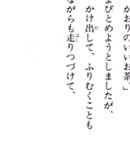 かおりのいいお茶」
よびとめようとしましたが、
かけ出して、ふりむくことも
ながらも走りつづけて、